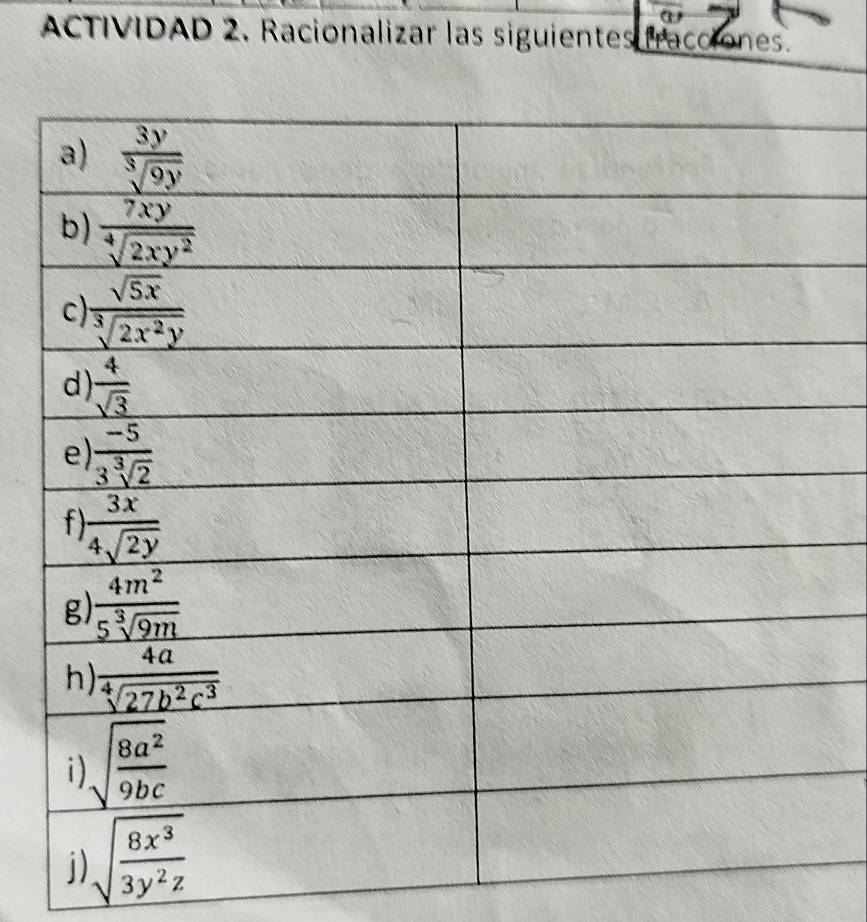 ACTIVIDAD 2. Racionalizar las siguientes fracciones.
a) \frac{3y}{\sqrt[3]{9y}}
b) \frac{7xy}{\sqrt[4]{2xy^2}}
c) \frac{\sqrt{5x}}{\sqrt[3]{2x^2y}}
d) \frac{4}{\sqrt{3}}
e) \frac{-5}{3\sqrt[3]{2}}
f) \frac{3x}{4\sqrt{2y}}
g) \frac{4m^2}{5\sqrt[3]{9m}}
h) \frac{4a}{\sqrt[4]{27b^2c^3}}
i) \sqrt{\frac{8a^2}{9bc}}
j) \sqrt{\frac{8x^3}{3y^2z}}